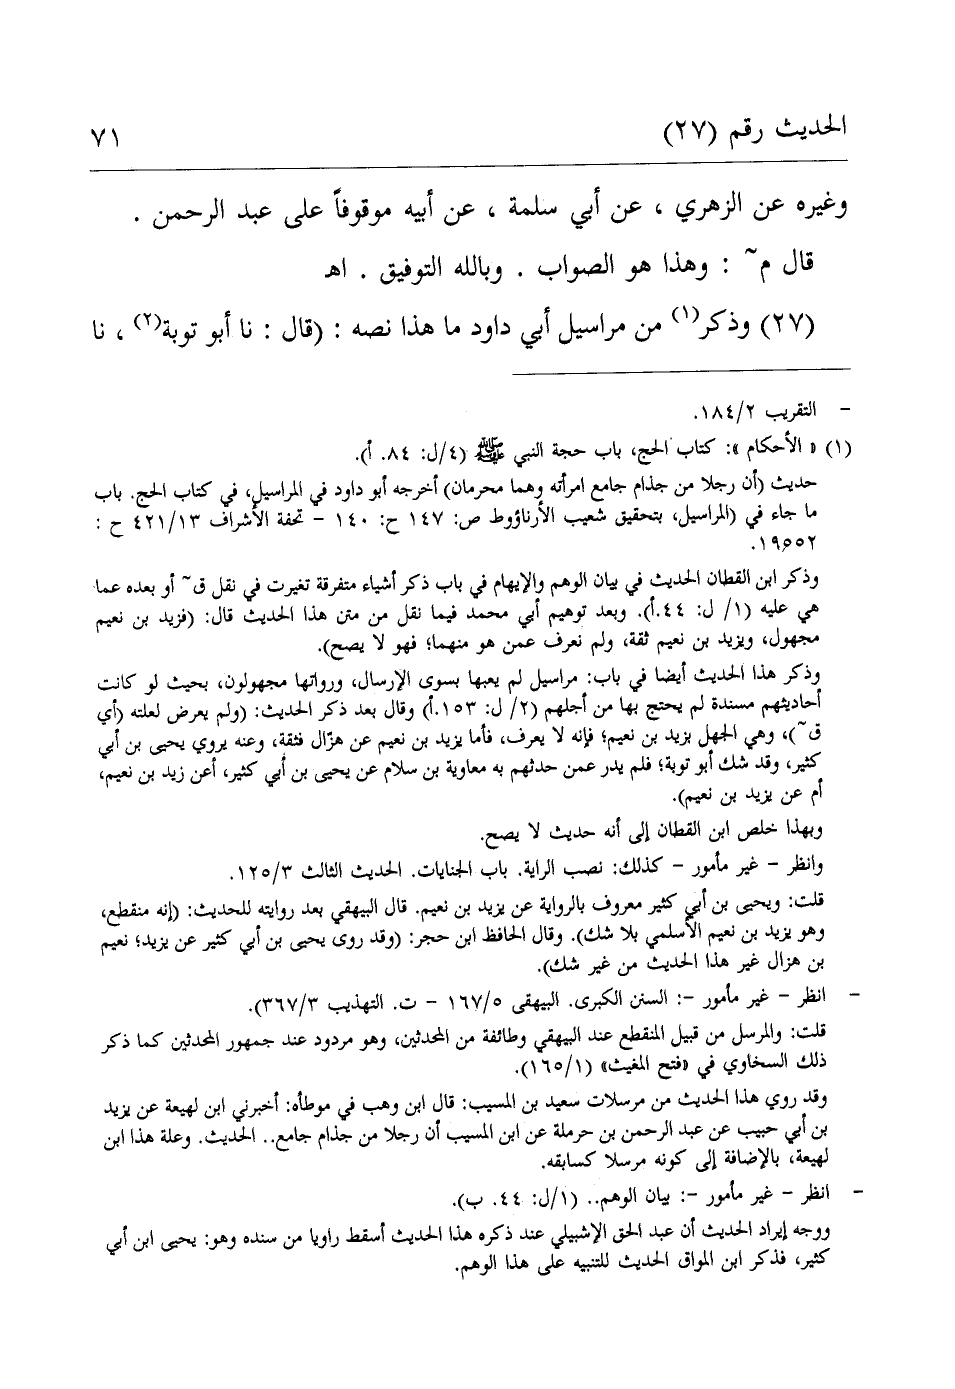 الحديث رقم (٢٧)
٧١
وغيره عن الزهري ، عن أبي سلمة ، عن أبيه موقوفاً على عبد الرحمن .
قال م~ : وهذا هو الصواب . وبالله التوفيق . اهـ
(٢٧) وذكر(١) من مراسيل أبي داود ما هذا نصه : (قال : نا أبو توبة(٢) ، نا
– التقريب ١٨٤/٢.
(١) « الأحكام »: كتاب الحج، باب حجة النبي ﷺ (٤/ل: ٨٤. أ).
حديث (أن رجلا من جذام جامع امرأته وهما محرمان) أخرجه أبو داود في المراسيل، في كتاب الحج. باب
ما جاء في (المراسيل، بتحقيق شعيب الأرناؤوط ص: ١٤٧ ح: ١٤٠ – تحفة الأشراف ٤٢١/١٣ ح :
١٩٥٥٢.
وذكر ابن القطان الحديث في بيان الوهم والإيهام في باب ذكر أشياء متفرقة تغيرت في نقل ق~ أو بعده عما
هي عليه (١/ ل: ٤٤.أ). وبعد توهيم أبي محمد فيما نقل من متن هذا الحديث قال: (فزيد بن نعيم
مجهول، ويزيد بن نعيم ثقة، ولم نعرف عمن هو منهما؛ فهو لا يصح).
وذكر هذا الحديث أيضا في باب: مراسيل لم يعبها بسوى الإرسال، ورواتها مجهولون، بحيث لو كانت
أحاديثهم مسندة لم يحتج بها من أجلهم (٢/ ل: ١٥٣.أ) وقال بعد ذكر الحديث: (ولم يعرض لعلته (أي
ق~)، وهي الجهل بزيد بن نعيم؛ فإنه لا يعرف، فأما يزيد بن نعيم عن هزّال فثقة، وعنه يروي يحيى بن أبي
كثير، وقد شك أبو توبة؛ فلم يدر عمن حدثهم به معاوية بن سلام عن يحيى بن أبي كثير، أعن زيد بن نعيم،
أم عن يزيد بن نعيم).
وبهذا خلص ابن القطان إلى أنه حديث لا يصح.
وانظر – غير مأمور – كذلك: نصب الراية. باب الجنايات. الحديث الثالث ١٢٥/٣.
قلت: ويحيى بن أبي كثير معروف بالرواية عن يزيد بن نعيم. قال البيهقي بعد روايته للحديث: (إنه منقطع،
وهو يزيد بن نعيم الأسلمي بلا شك). وقال الحافظ ابن حجر: (وقد روى يحيى بن أبي كثير عن يزيد؛ نعيم
بن هزال غير هذا الحديث من غير شك).
– انظر – غير مأمور –: السنن الكبرى. البيهقى ١٦٧/٥ – ت. التهذيب ٣٦٧/٣).
قلت: والمرسل من قبيل المنقطع عند البيهقي وطائفة من المحدثين، وهو مردود عند جمهور المحدثين كما ذكر
ذلك السخاوي في «فتح المغيث» (١٦٥/١).
وقد روي هذا الحديث من مرسلات سعيد بن المسيب: قال ابن وهب في موطأه: أخبرني ابن لهيعة عن يزيد
بن أبي حبيب عن عبد الرحمن بن حرملة عن ابن المسيب أن رجلا من جذام جامع.. الحديث. وعلة هذا ابن
لهيعة، بالإضافة إلى كونه مرسلا كسابقه.
– انظر – غير مأمور –: بيان الوهم.. (١/ل: ٤٤. ب).
ووجه إيراد الحديث أن عبد الحق الإشبيلي عند ذكره هذا الحديث أسقط راويا من سنده وهو: يحيى ابن أبي
كثير، فذكر ابن المواق الحديث للتنبيه على هذا الوهم.